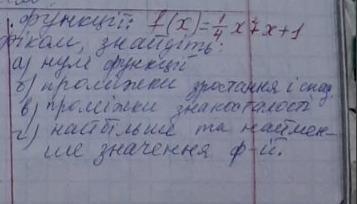 функції: f(x)=¼x²+x+1
фіком, знайдіть:
а) нулі функції
б) проміжки зростання і спад.
в) проміжки знакосталості
г) найбільше та наймен-
ше значення ф-ії.